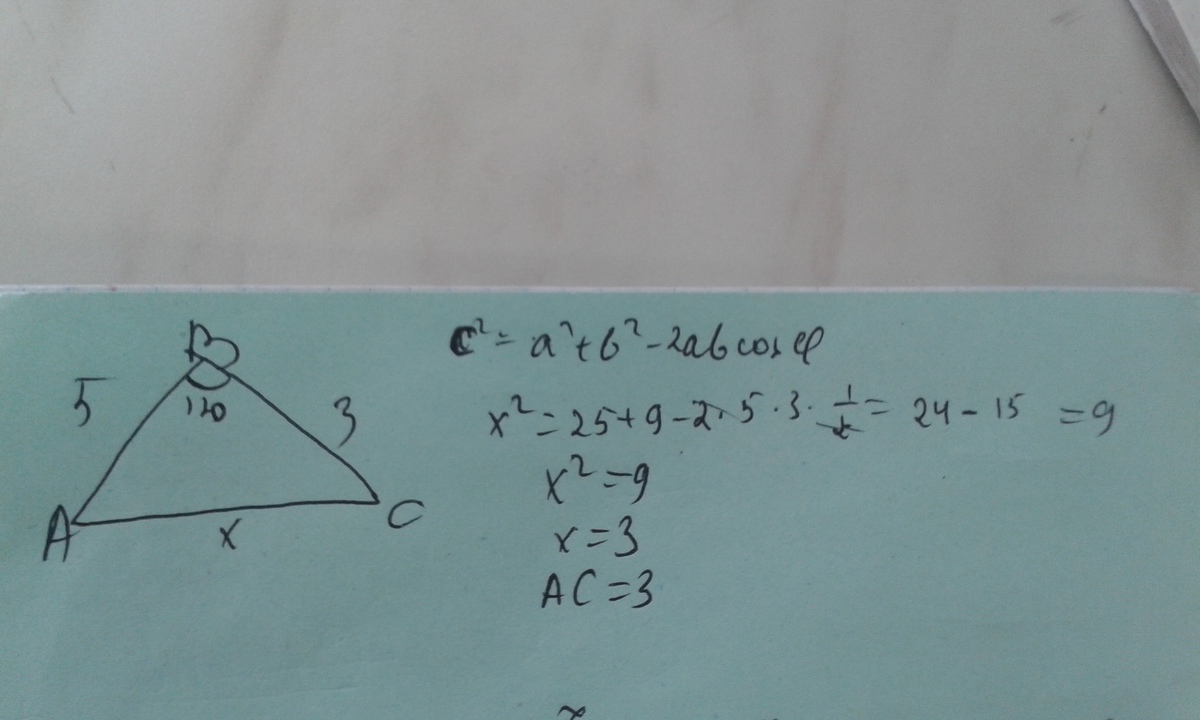 B
5
120
3
A
x
C
c² = a² + b² - 2ab cos φ
x² = 25 + 9 - 2 · 5 · 3 · 1/2 = 24 - 15 = 9
x² = 9
x = 3
AC = 3